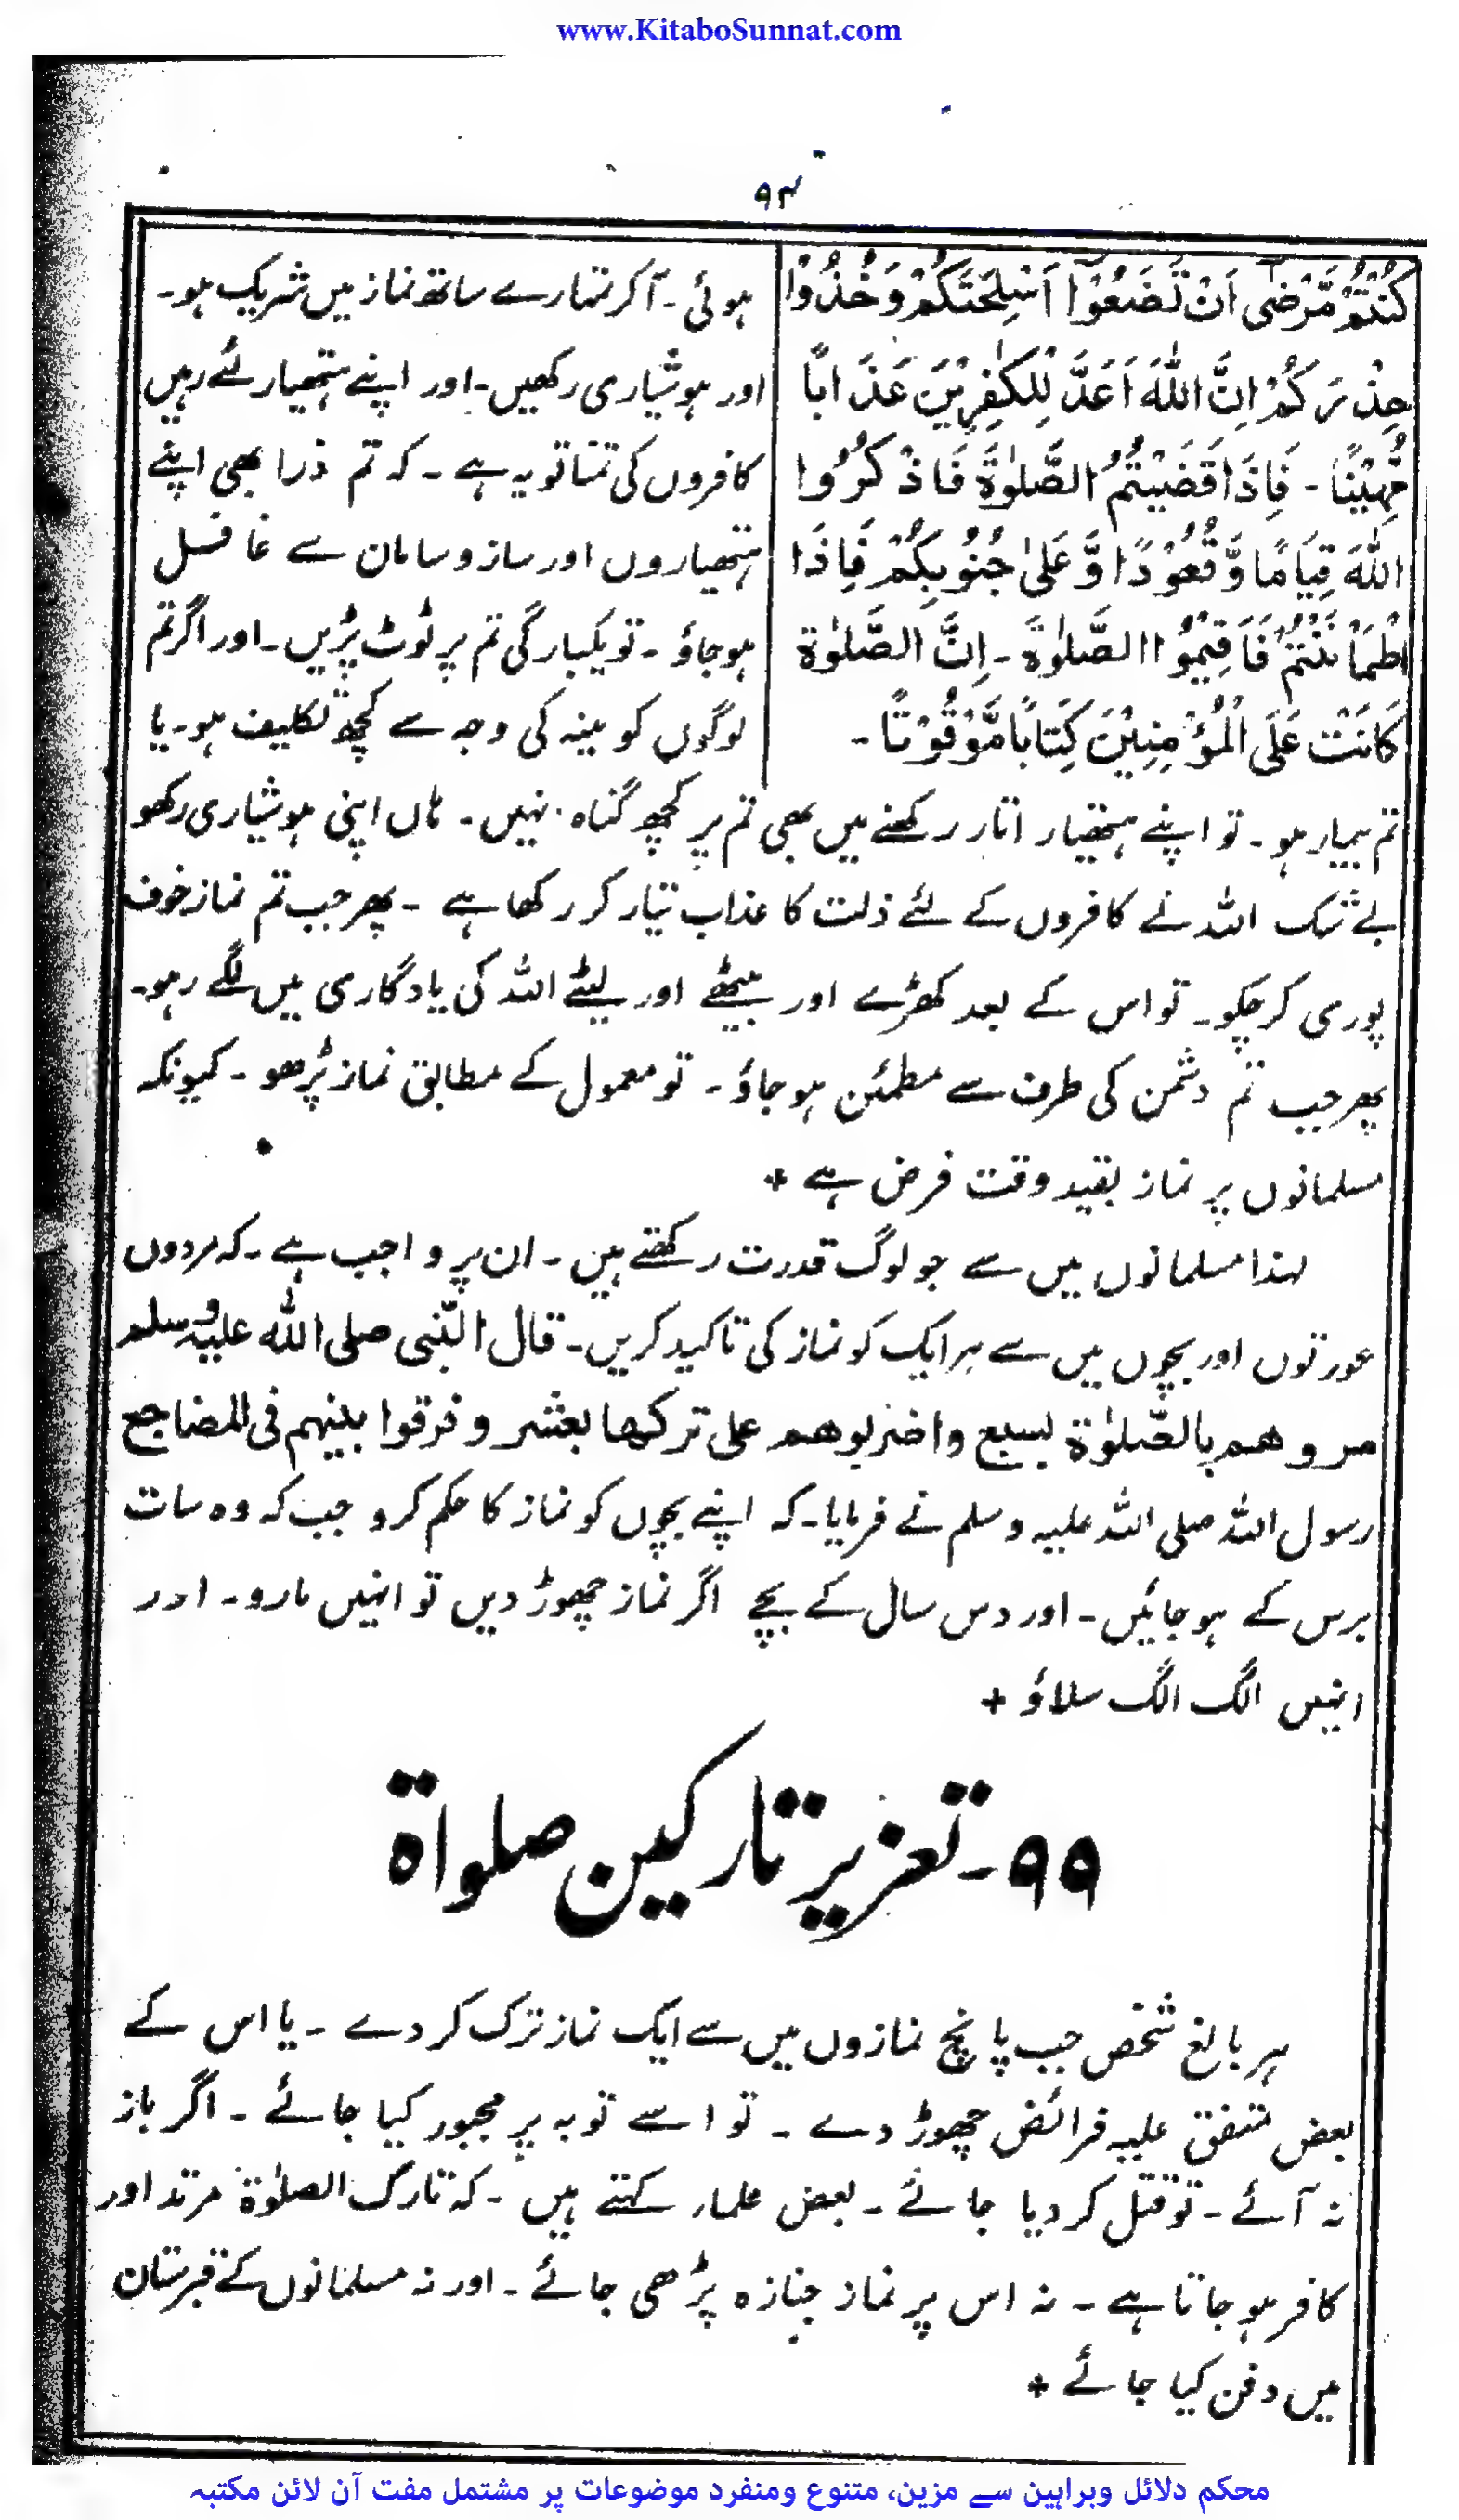 www.KitaboSunnat.com
۹۴
كُنْتُمْ مَّرْضٰٓى اَنْ تَضَعُوْٓا اَسْلِحَتَكُمْ وَخُذُوْا
حِذْرَكُمْ اِنَّ اللّٰهَ اَعَدَّ لِلْكٰفِرِيْنَ عَذَابًا
مُّهِيْنًا - فَاِذَا قَضَيْتُمُ الصَّلٰوةَ فَاذْكُرُوا
اللّٰهَ قِيَامًا وَّقُعُوْدًا وَّعَلٰى جُنُوْبِكُمْ فَاِذَا
اطْمَاْنَنْتُمْ فَاَقِيْمُوا الصَّلٰوةَ - اِنَّ الصَّلٰوة
كَانَتْ عَلَى الْمُؤْمِنِيْنَ كِتَابًا مَّوْقُوْتًا -
ہوئی - آکر تمہارے ساتھ نماز میں شریک ہو -
اور ہوشیاری رکھیں - اور اپنے ہتھیار لئے رہیں
کافروں کی تمنا تو یہ ہے - کہ تم ذرا بھی اپنے
ہتھیاروں اور ساز و سامان سے غافل
ہو جاؤ - تو یکبارگی تم پر ٹوٹ پڑیں - اور اگر تم
لوگوں کو مینہ کی وجہ سے کچھ تکلیف ہو - یا
تم بیمار ہو - تو اپنے ہتھیار اتار رکھنے میں بھی تم پر کچھ گناہ نہیں - ہاں اپنی ہوشیاری رکھو
بے شک اللہ نے کافروں کے لئے ذلت کا عذاب تیار کر رکھا ہے - پھر جب تم نماز خوف
پوری کر چکو - تو اس کے بعد کھڑے اور بیٹھے اور لیٹے اللہ کی یادگاری میں لگے رہو -
پھر جب تم دشمن کی طرف سے مطمئن ہو جاؤ - تو معمول کے مطابق نماز پڑھو - کیونکہ
مسلمانوں پر نماز بقید وقت فرض ہے +
لہذا مسلمانوں میں سے جو لوگ قدرت رکھتے ہیں - ان پر واجب ہے - کہ مردوں
عورتوں اور بچوں میں سے ہر ایک کو نماز کی تاکید کریں - قال النّبی صلی اللّٰہ علیہ وسلم
مروهم بالصّلوٰة لسبع واضربوهم علی تركها بعشر و فرقوا بينهم فی المضاجع
رسول اللہ صلی اللہ علیہ وسلم نے فرمایا - کہ اپنے بچوں کو نماز کا حکم کرو جب کہ وہ سات
برس کے ہو جائیں - اور دس سال کے بچے اگر نماز چھوڑ دیں تو انہیں مارو - اور
انہیں الگ الگ سلاؤ +
۹۹ - تعزیر تارکین صلواۃ
ہر بالغ شخص جب پانچ نمازوں میں سے ایک نماز ترک کر دے - یا اس کے
بعض متفق علیہ فرائض چھوڑ دے - تو اسے توبہ پر مجبور کیا جائے - اگر باز
نہ آئے - تو قتل کر دیا جائے - بعض علماء کہتے ہیں - کہ تارک الصلوٰۃ مرتد اور
کافر ہو جاتا ہے - نہ اس پر نماز جنازہ پڑھی جائے - اور نہ مسلمانوں کے قبرستان
میں دفن کیا جائے +
محکم دلائل وبراہین سے مزین، متنوع ومنفرد موضوعات پر مشتمل مفت آن لائن مکتبہ